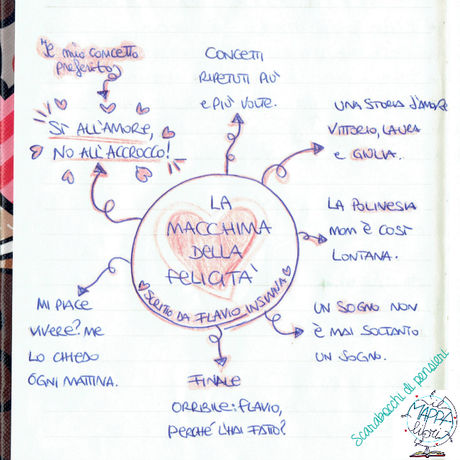 IL mio concetto
preferito
SÌ ALL'AMORE,
NO ALL'ACCROCCO!
CONCETTI
RIPETUTI PIÙ
e PIÙ VOLTE.
UNA STORIA D'AMORE
VITTORIO, LAURA
e GIULIA.
LA POLINESIA
non È COSÌ
LONTANA.
UN SOGNO NON
È MAI SOLTANTO
UN SOGNO.
FINALE
ORRIBILE: FLAVIO,
PERCHÉ L'HAI FATTO?
MI PIACE
VIVERE? ME
LO CHIEDO
OGNI MATTINA.
LA
MACCHINA
DELLA
FELICITÀ
SCRITTO DA FLAVIO INSINNA
Scarabocchi di pensieri
il
MAPPA
libri